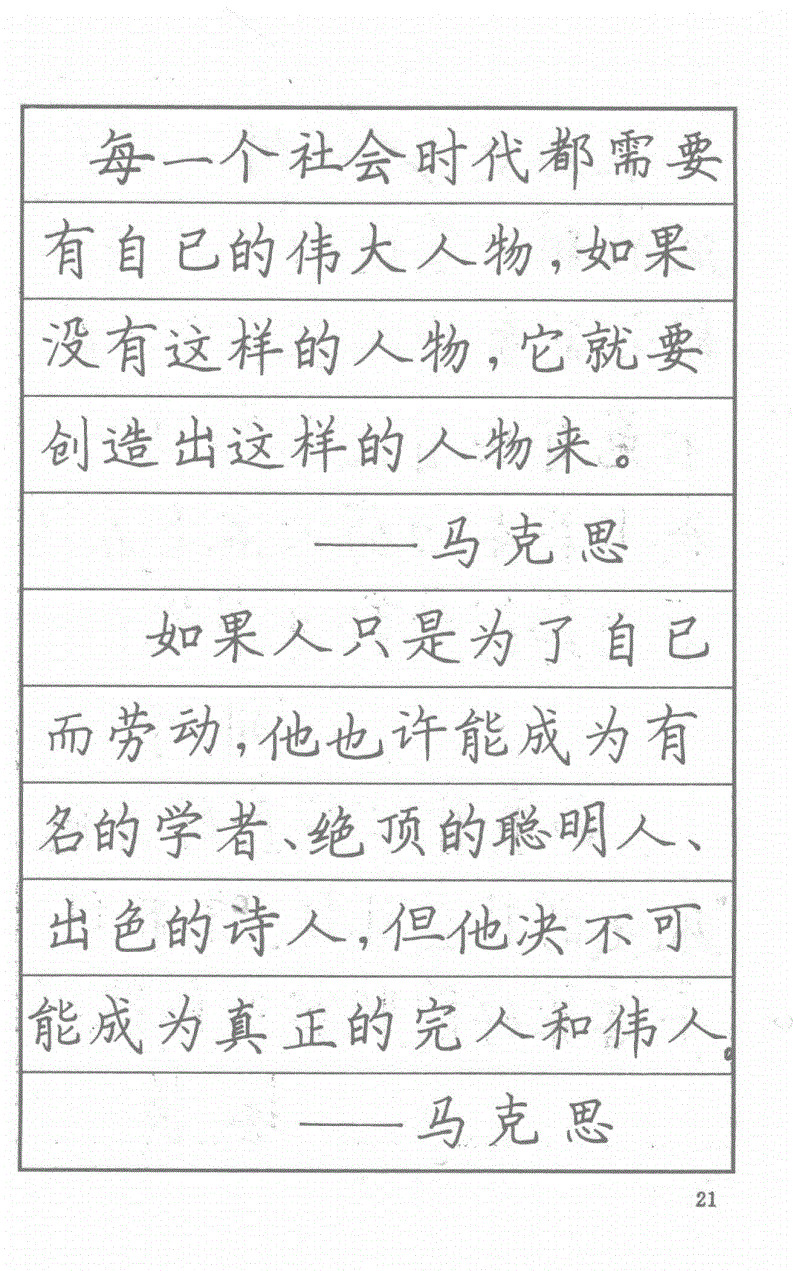 每一个社会时代都需要
有自己的伟大人物,如果
没有这样的人物,它就要
创造出这样的人物来。
——马克思
如果人只是为了自己
而劳动,他也许能成为有
名的学者、绝顶的聪明人、
出色的诗人,但他决不可
能成为真正的完人和伟人。
——马克思
21